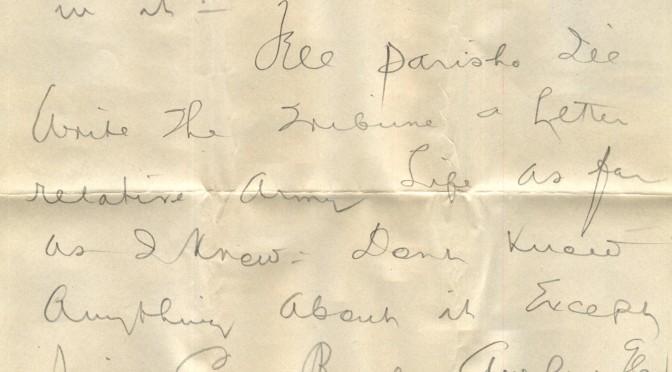 in it -
Tell Parish. I'ie
Write The Tribune a Letter
relative Army Life as far
as I Know - Dont Know
Anything About it Except